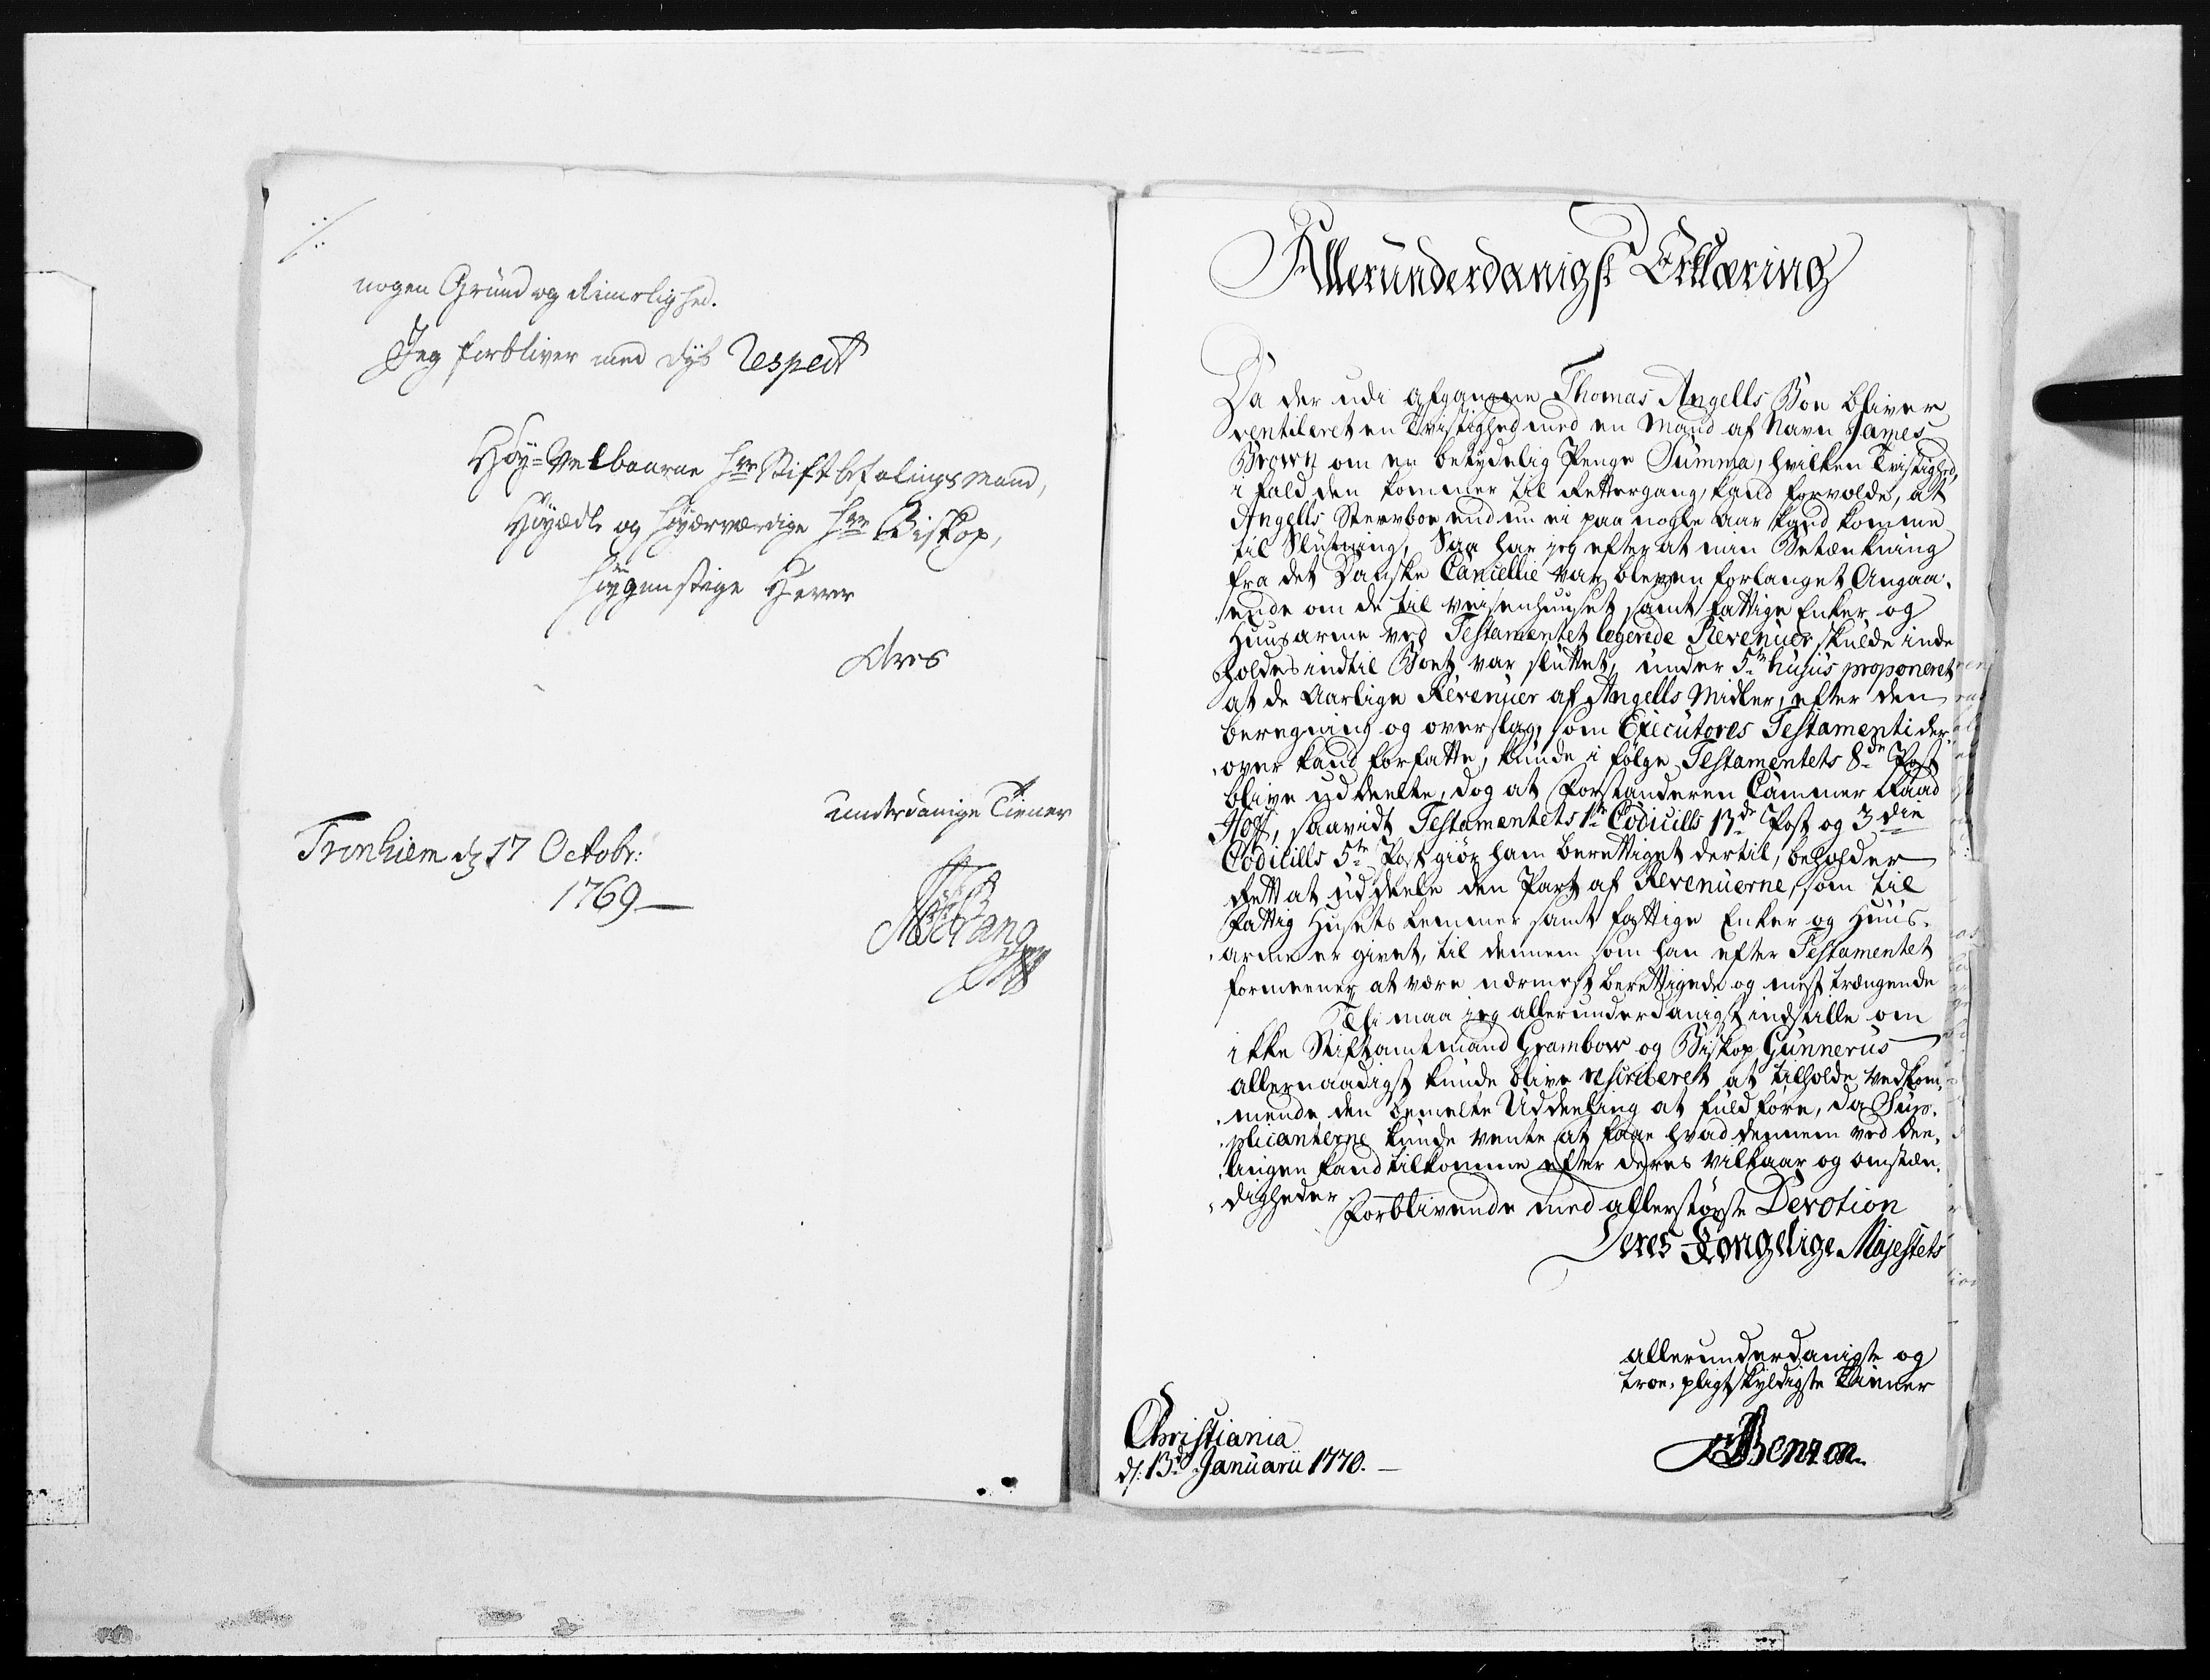 nogen Grund og Rimelighed.
Jeg forbliver med dyb Respect
Høy-Velbaarne Hrr Stiftbefalingsmand,
Høyædle og Høyærværdige Hrr Biskop,
Høygunstige Herrer
Dres
underdanige Tiener
Tronhiem d 17 Octobr:
1769
Allerunderdanigst Erklæring
Da der udi afgangne Thomas Angells Boe bliver
ventileret en Tvistighed med en Mand af Navn James
Brown om en betydelig Penge Summa, hvilken Tvistighed,
i fald den kommer til Rettergang, kand forvolde, at
Angells Stervboe endnu ei paa nogle Aar kand komme
til Slutning, Saa har jeg efter at min Betænkning
fra det Danske Cancellie var bleven forlanget Angaa-
ende om de til Veisenhuuset samt fattige Enker og
Huusarme ved Testamentet legerede Revenuer skulde inde
holdes indtil Boet var sluttet, under 5te hujus proponeret
at de Aarlige Revenuer af Angells Midler, efter den
beregning og overslag, som Executores Testamenti der-
over kand forfatte, kunde i følge Testamentets 8de Post
blive uddeelte, dog at Forstanderen Cammer Raad
Hoff, saavidt Testamentets 1te Codicills 13de Post og 3die
Codicills 5te Post giør ham berettiget dertil, beholder
Rett at uddeele den Part af Revenuerne, som til
Fattig Husets Lemmer samt fattige Enker og Huus-
arme er givet, til dennem som han efter Testamentet
formeener at være nærmest berettigede og mest trængende
Thi maa jeg allerunderdanigst indstille om
ikke Stiftamtmand Grambow og Biskop Gunnerus
allernaadigst kunde blive rescriberet at tilholde Vedkom-
mende den bemelte Uddeeling at fuldføre, da Sup-
plicanterne kunde vente at faae hvad dennem ved dee-
lingen kand tilkomme efter deres Vilkaar og omstæn-
digheder
Forblivende med allerstørste Devotion
Deres Kongelige Majestets
allerunderdanigste og
troe-pligtskyldigste Tiener
Benzon
Christiania
d: 13de Januarii 1770.